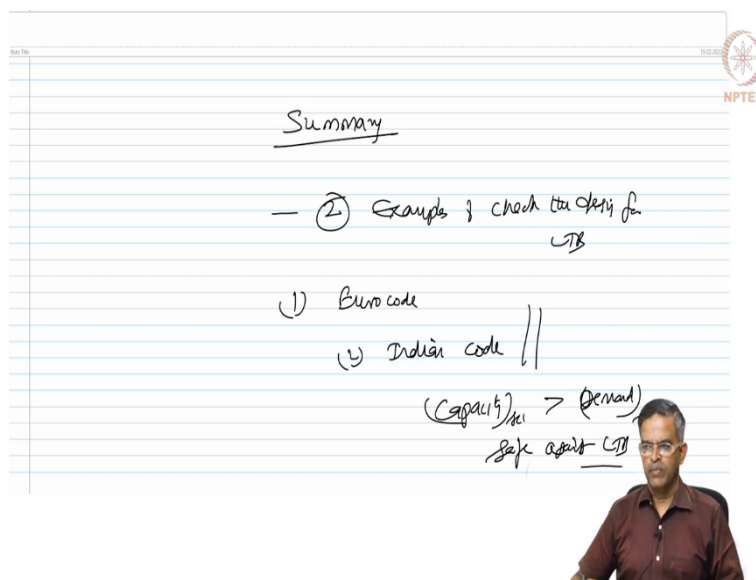 Note Title
NPTE
Summary
— (2) Examples & check the design for
LTB
(1) Eurocode
(2) Indian code
(Capacity) > (Demand)
safe against LTB